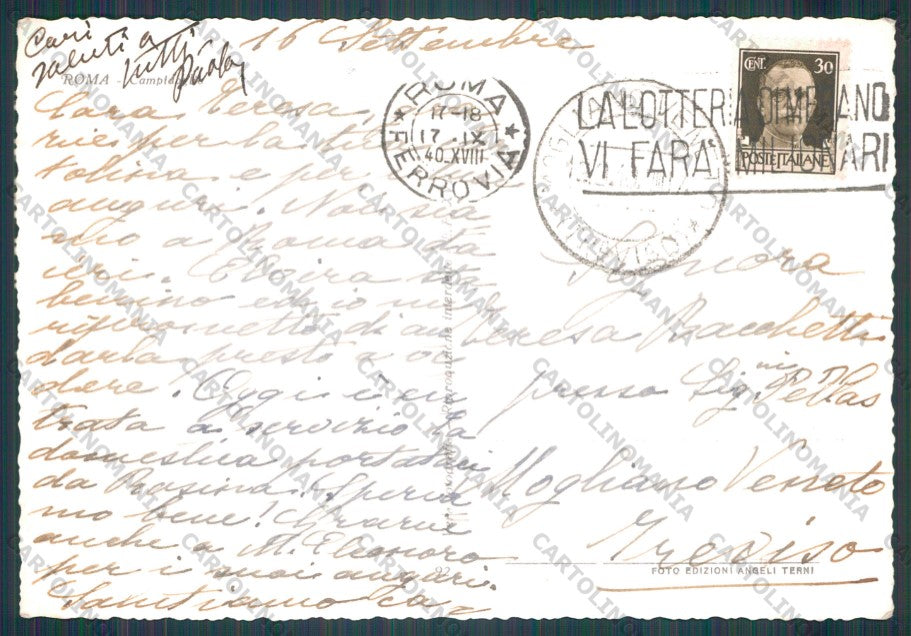 Cari
saluti a
tutti
Paola
16 Settembre
ROMA - Campidoglio
Cara Teresa,
per la tua
tolina e per
auguri. Noi sia
mo a Roma da
ieri. Elvira sta
benino ed io mi
riprometto di an
darla presto a ve
dere. Oggi è en
trata a servizio la
domestica portata
da Rosina. Speria
mo bene! Grazie
anche a M. Eleonora
per i suoi auguri.
ROMA
FERROVIA
17-18
17.IX
40.XVIII
LA LOTTERIA DI MERANO
VI FARÀ MILIONARI
CENT. 30
POSTE ITALIANE
MOGLIANO VENETO
Signora
Teresa Bacchetti
presso Sig. Pellas
Mogliano Veneto
Treviso
92
FOTO EDIZIONI ANGELI TERNI
CARTOLINOMANIA